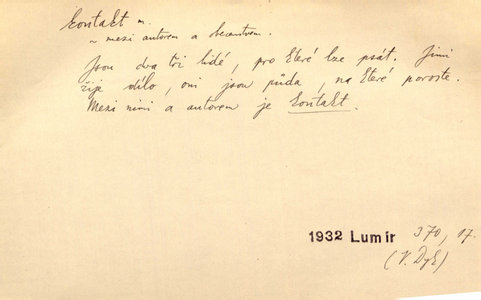 kontakt m.
~ mezi autorem a obecenstvem.
Jsou dva tři lidé, pro které lze psát. Jimi
žije dílo, oni jsou půda, na které poroste.
Mezi nimi a autorem je kontakt.
1932 Lumír 370, 17.
(V. Dyk)